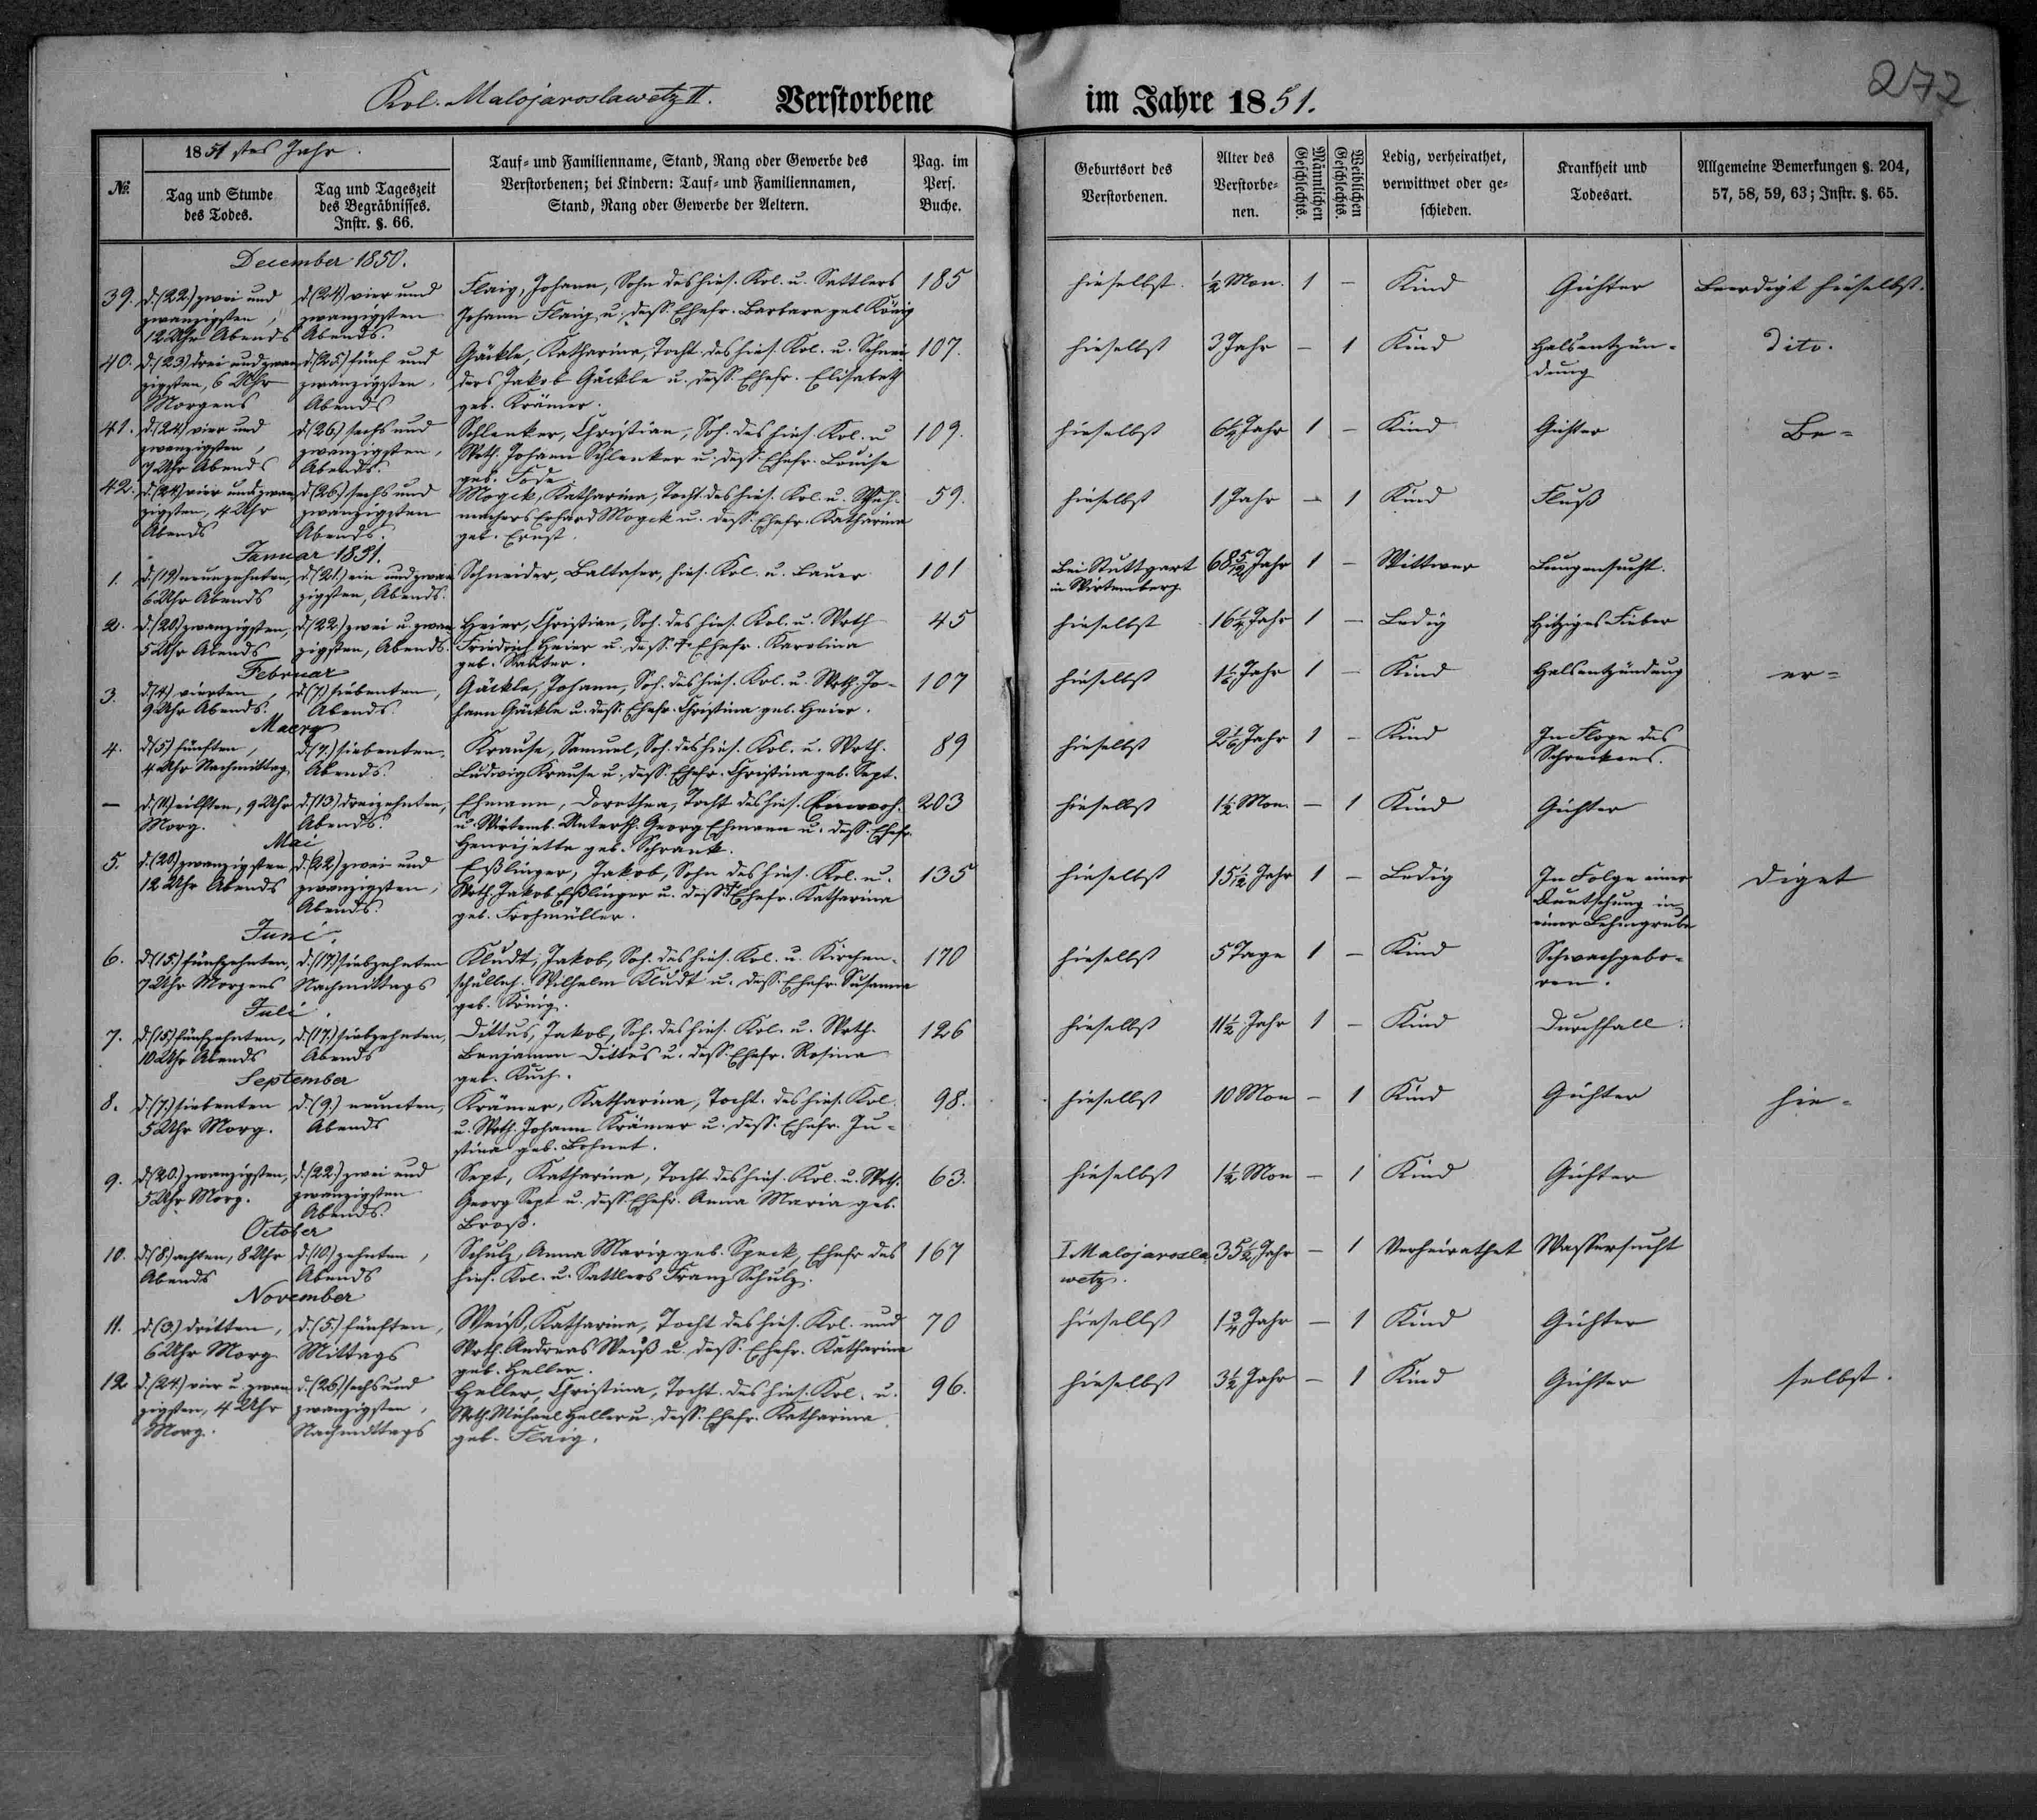 272
Kol. Malojaroslawetz II. Verstorbene im Jahre 1851.
1851 stes Jahr.
No. Tag und Stunde des Todes. Tag und Tageszeit des Begräbnisses. Instr. §. 66. Tauf- und Familienname, Stand, Rang oder Gewerbe des Verstorbenen; bei Kindern: Tauf- und Familiennamen, Stand, Rang oder Gewerbe der Aeltern. Pag. im Pers. Buche. Geburtsort des Verstorbenen. Alter des Verstorbenen. Männlichen Geschlechts. Weiblichen Geschlechts. Ledig, verheirathet, verwittwet oder geschieden. Krankheit und Todesart. Allgemeine Bemerkungen §. 204, 57, 58, 59, 63; Instr. §. 65.
December 1850.
39. d. (22.) zwei und d. (24.) vier und Flaig, Johann, Sohn des hies. Kol. u. Sattlers 185 hieselbst. ½ Mon. 1 – Kind Gichter Beerdigt hieselbst.
zwanzigsten, zwanzigsten Johann Flaig u. dess. Ehefr. Barbara geb. König
12 Uhr Abends Abends.
40. d. (23.) drei und zwan- d. (25.) fünf und Gäckle, Katharina, Tocht. des hies. Kol. u. Schnei- 107. hieselbst 3 Jahr – 1 Kind Halsentzün- dito.
zigsten, 6 Uhr zwanzigsten, ders Jakob Gäckle u. dess. Ehefr. Elisabeth dung
Morgens Abends geb. Krämer.
41. d. (24.) vier und d. (26.) sechs und Schlenker, Christian, Soh. des hies. Kol. u. 109. hieselbst 6½ Jahr 1 – Kind Gichter Be-
zwanzigsten, zwanzigsten, Wrth. Johann Schlenker u. dess. Ehefr. Louise
7 Uhr Abends Abends. geb. Fode.
42. d. (24.) vier und zwan- d. (26.) sechs und Mogck, Katharina, Tocht. des hies. Kol. u. Schuh- 59. hieselbst 1 Jahr – 1 Kind Fluß
zigsten, 4 Uhr zwanzigsten machers Erhard Mogck u. dess. Ehefr. Katharina
Abends Abends. geb. Ernst.
Januar 1851.
1. d. (19.) neunzehnten, d. (21.) ein und zwan- Schneider, Baltaser, hies. Kol. u. Bauer 101 Bei Stuttgart 68 5/12 Jahr 1 – Wittwer Lungensucht.
6 Uhr Abends zigsten, Abends. in Wirtemberg
2. d. (20.) zwanzigsten, d. (22.) zwei u. zwan- Heier, Christian, Soh. des hies. Kol. u. Wrth 45 hieselbst 16¼ Jahr 1 – Ledig Hitziges Fieber
5 Uhr Abends zigsten, Abends. Friedrich Heier u. dess. † Ehefr. Karolina
geb. Sauter.
Februar
3. d. (4.) vierten, d. (7.) siebenten, Gäckle, Johann, Soh. des hies. Kol. u. Wrth. Jo- 107 hieselbst 1⅙ Jahr 1 – Kind Halsentzündung er-
9 Uhr Abends. Abends. hann Gäckle u. dess. Ehefr. Christina geb. Heier.
Maerz
4. d. (5.) fünften, d. (7.) siebenten, Krause, Samuel, Soh. des hies. Kol. u. Wrth. 89 hieselbst 2⅙ Jahr 1 – Kind In Folge des
4 Uhr Nachmittag Abends. Ludwig Krause u. dess. Ehefr. Christina geb. Sept. Schreckens.
– d. (11.) eilften, 9 Uhr d. (13.) dreizehnten, Ehmann, Dorothea, Tocht. des hies. 203 hieselbst 1½ Mon. – 1 Kind Gichter
Morg. Abends. u. Wirtemb. Unterth. Georg Ehmann u. dess. Ehefr.
Mai Henrijette geb. Schrank.
5. d. (20.) zwanzigsten d. (22.) zwei und Eßlinger, Jakob, Sohn des hies. Kol. u. 135 hieselbst 15 1/12 Jahr 1 – Ledig In Folge einer diget
12 Uhr Abends zwanzigsten, Wrth. Jakob Eßlinger u. dess. † Ehefr. Katharina in
Abends. geb. Frohmüller. einer Lehmgrube
Juni.
6. d. (15.) fünfzehnten, d. (17.) siebzehnten Kludt, Jakob, Soh. des hies. Kol. u. Kirchen- 170 hieselbst 5 Tage 1 – Kind Schwachgebo-
7 Uhr Morgens Nachmittags schulleh. Wilhelm Kludt u. dess. Ehefr. Susanna ren.
geb. König.
Juli.
7. d. (15.) fünfzehnten, d. (17.) siebzehnten, Dittus, Jakob, Soh. des hies. Kol. u. Wrth. 126 hieselbst 11½ Jahr 1 – Kind Durchfall.
10 Uhr Abends Abends Benjamin Dittus u. dess. Ehefr. Rosina
September geb. Kuch.
8. d. (7.) siebenten d. (9.) neunten, Krämer, Katharina, Tocht. des hies. Kol. 98. hieselbst 10 Mon – 1 Kind Gichter hie-
5 Uhr Morg. Abends u. Wrth. Johann Krämer u. dess. Ehefr. Ju-
stina geb. Bohnet.
9. d. (20.) zwanzigsten, d. (22.) zwei und Sept, Katharina, Tocht. des hies. Kol. u. Wrth. 63. hieselbst 1½ Mon – 1 Kind Gichter
5 Uhr Morg. zwanzigsten Georg Sept u. dess. Ehefr. Anna Maria geb.
Abends. Broß.
October
10. d. (8.) achten, 8 Uhr d. (10.) zehnten, Schulz, Anna Maria geb. Speck, Ehefr. des 167 I. Malojarosla- 35½ Jahr – 1 Verheirathet Wassersucht
Abends Abends hies. Kol. u. Sattlers Franz Schulz. wetz.
November
11. d. (3.) dritten, d. (5.) fünften, Weiß, Katharina, Tocht. des hies. Kol. und 70 hieselbst 1¾ Jahr – 1 Kind Gichter
6 Uhr Morg Mittags Wrth. Andreas Weiß u. dess. Ehefr. Katharina
geb. Heller.
12 d. (24.) vier u. zwan- d. (26.) sechs und Heller, Christina, Tocht. des hies. Kol. u. 96. hieselbst 3½ Jahr – 1 Kind Gichter selbst.
zigsten, 4 Uhr zwanzigsten, Wrth. Michael Heller u. dess. Ehefr. Katharina
Morg. Nachmittags geb. Flaig.